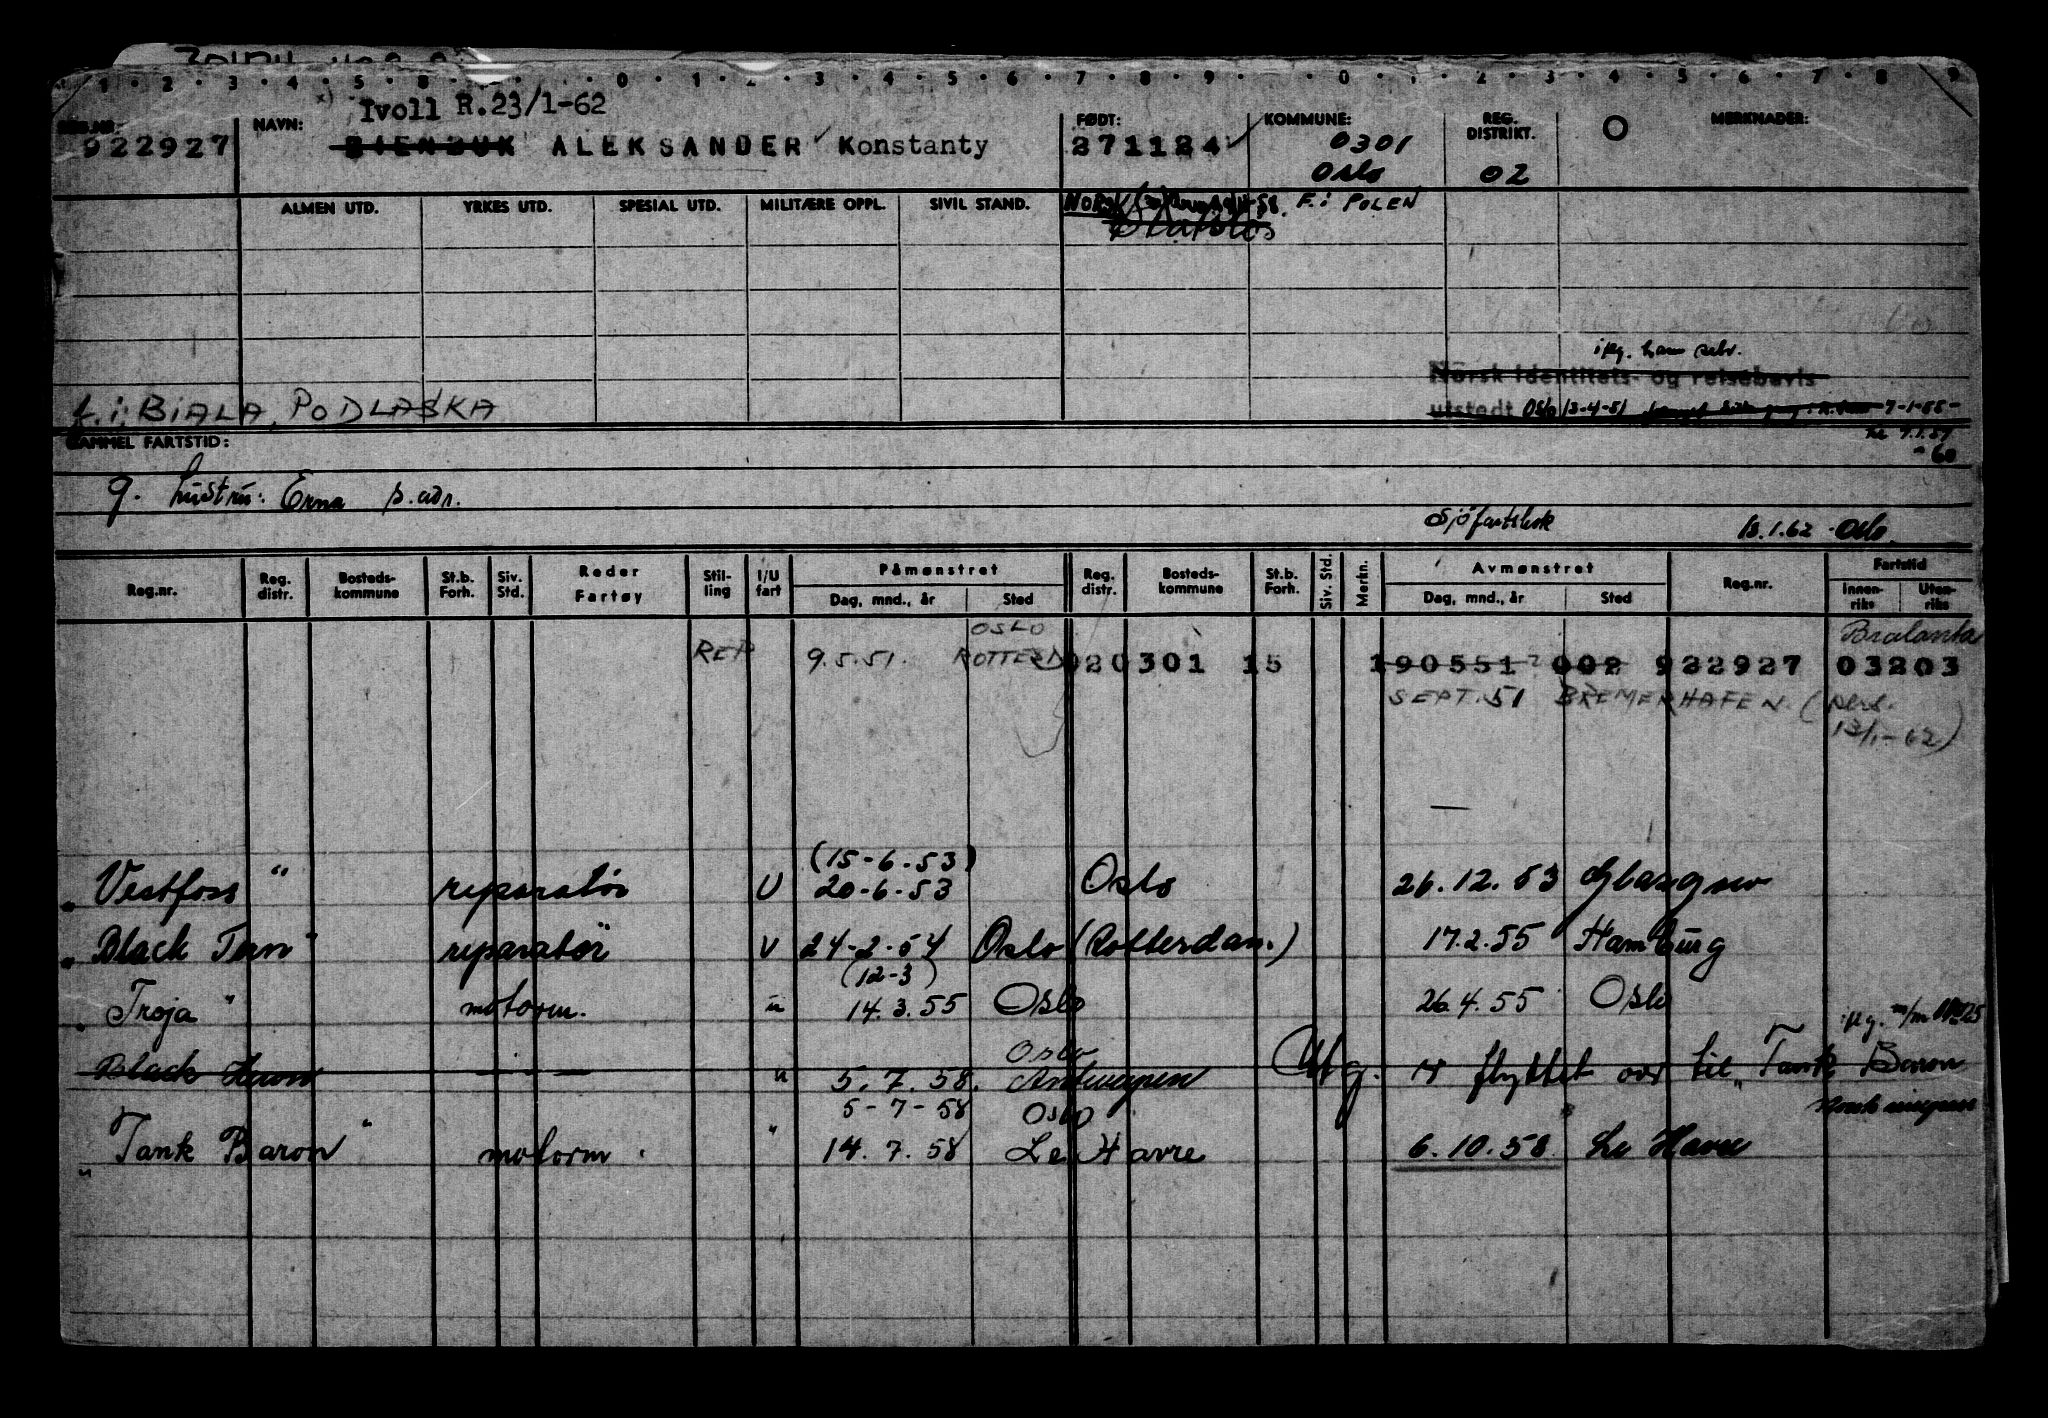 1 · 2 · 3 · 4 · 5 · 8 · 0 · 1 · 2 · 3 · 4 · 5 · 6 · 7 · 8 · 9 · 0 · 1 · 2 · 3 · 4 · 5 · 6 · 7 · 8 · 9
Ivoll R.23/1-62
REG.NR: NAVN: FØDT: KOMMUNE: REG. DISTRIKT. O MERKNADER:
922927 BIENDUK ALEKSANDER Konstanty 271124 0301 Oslo 02
ALMEN UTD. YRKES UTD. SPESIAL UTD. MILITÆRE OPPL. SIVIL STAND. NORSK F. i POLEN
Statsløs
Norsk identitets- og reisebevis
f. i. BIALA, PODLASKA utstedt Oslo 13-4-51 7-1-55-
GAMMEL FARTSTID: 7.1.57
- 60
g. hustru: Erna s. adr.
Sjøfartsbok 18.1.62 · Oslo.
Reg.nr. Reg. distr. Bosteds- kommune St.b. Forh. Siv. Std. Reder Fartøy Stil- ling I/U fart Påmønstret Dag, mnd., år Sted Reg. distr. Bosteds- kommune St.b. Forh. Siv. Std. Merkn. Avmønstret Dag, mnd., år Sted Reg.nr. Fartstid Innen- riks Uten- riks
OSLO Bralanta
REP 9.5.51. ROTTERD 020301 15 190551 002 922927 03203
SEPT. 51 BREMERHAFEN (pers. 13/1-62)
(15-6.53)
" Vestfoss " reparatør U 20-6-53 Oslo 26.12.53 Glasgow
" Black Tern " reparatør U 24-2-54 Oslo (Rotterdam.) 17.2.55 Hamburg
(12-3)
" Troja " motorm. " 14.3.55 Oslo 26.4.55 Oslo
Oslo
Black Heron " 5.7.58. Antwerpen Utg. flyttet over til " Tank Baron
5-7-58 Oslo
" Tank Baron " motorm. " 14.7.58 Le Havre 6.10.58 Le Havre